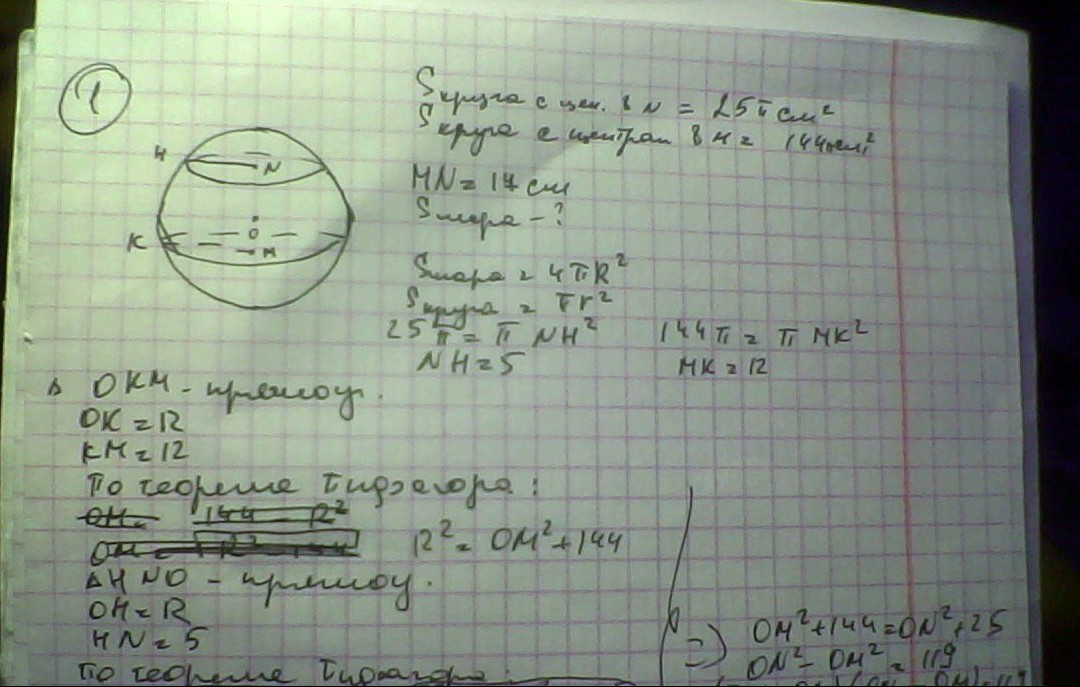 1
S круга с цен. в N = 25π см²
S круга с центром в M = 144π см²
H
N
O
K
M
MN = 17 см
S шара - ?
S шара = 4πR²
S круга = πr²
25π = π NH² 144π = π MK²
NH = 5 MK = 12
Δ OKM - прямоуг.
OK = R
KM = 12
По теореме Пифагора:
R² = OM² + 144
Δ HNO - прямоуг.
OH = R
HN = 5
По теореме Пифагора:
=> OM² + 144 = ON² + 25
ON² - OM² = 119